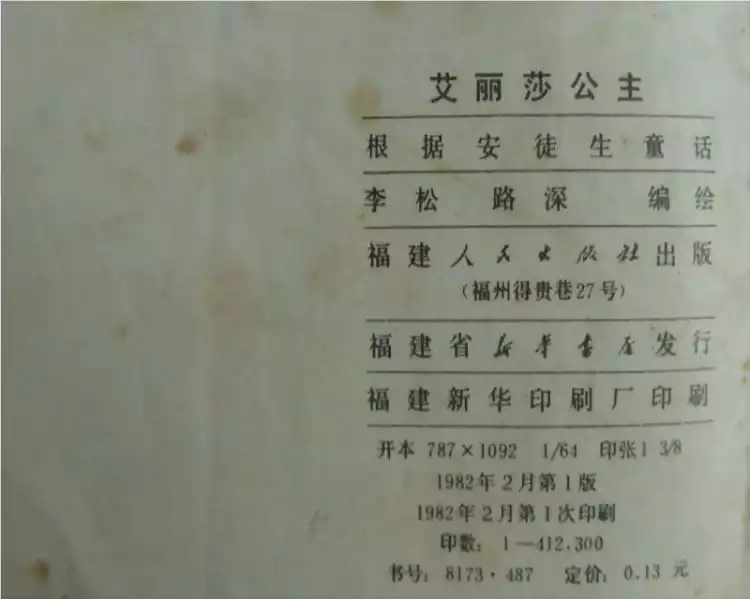 艾丽莎公主
根据安徒生童话
李松 路深 编绘
福建人民出版社出版
(福州得贵巷27号)
福建省新华书店发行
福建新华印刷厂印刷
开本 787×1092 1/64 印张1 3/8
1982年2月第1版
1982年2月第1次印刷
印数: 1—412,300
书号: 8173·487 定价: 0.13 元